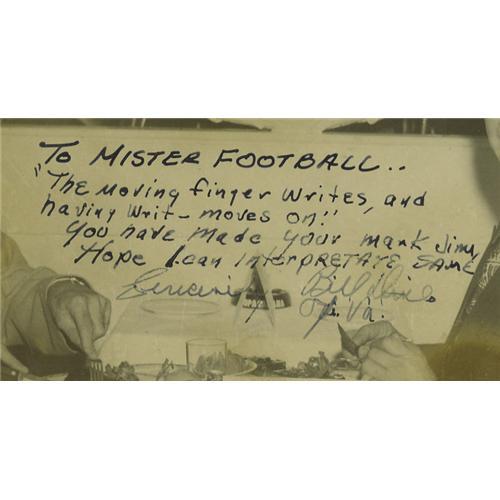 To MISTER FOOTBALL..
"The moving finger writes, and
having writ - moves on"
You have made your mark Jim,
Hope I can interpretate same
Sincerely